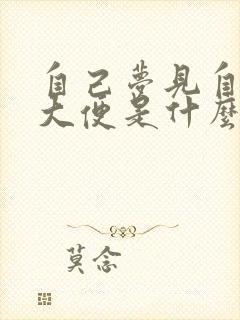 自己夢見自
大便是什麼
莫念